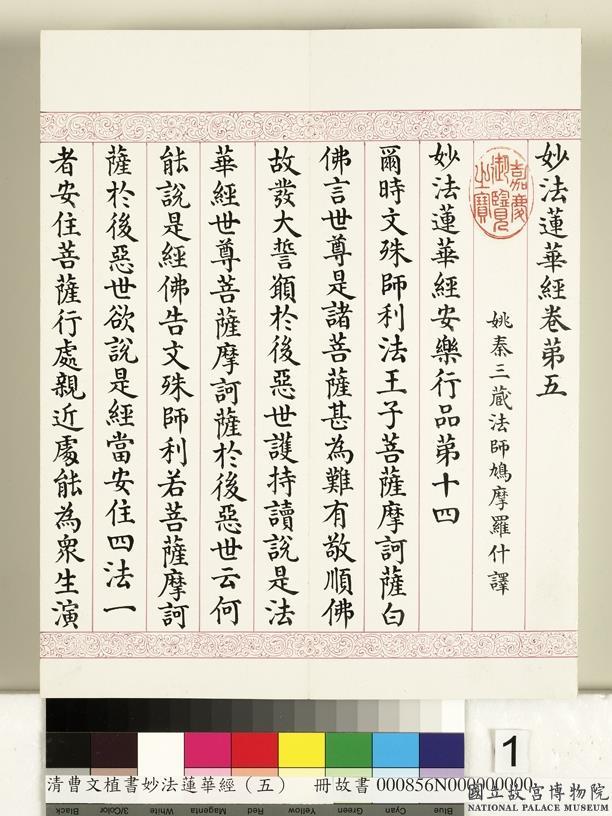 妙法蓮華經卷第五
嘉慶御覽之寶
姚秦三藏法師鳩摩羅什譯
妙法蓮華經安樂行品第十四
爾時文殊師利法王子菩薩摩訶薩白
佛言世尊是諸菩薩甚為難有敬順佛
故發大誓願於後惡世護持讀說是法
華經世尊菩薩摩訶薩於後惡世云何
能說是經佛告文殊師利若菩薩摩訶
薩於後惡世欲說是經當安住四法一
者安住菩薩行處親近處能為眾生演
1
清曹文植書妙法蓮華經（五） 冊故書 000856N000000000
Black 3/Color White Magenta Red Yellow Green Cyan Blue
國立故宮博物院
NATIONAL PALACE MUSEUM